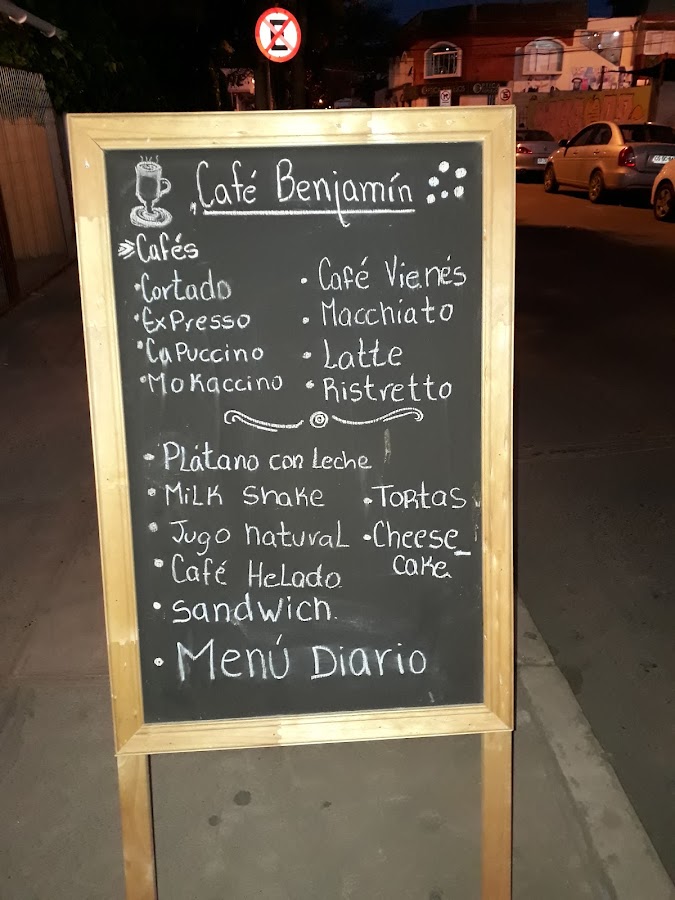 Café Benjamín
Cafés
Cortado
Expresso
Capuccino
Mokaccino
Café Vienés
Macchiato
Latte
Ristretto
Plátano con Leche
Milk Shake
Jugo Natural
Café Helado
Sandwich
Tortas
Cheese_
cake
Menú Diario